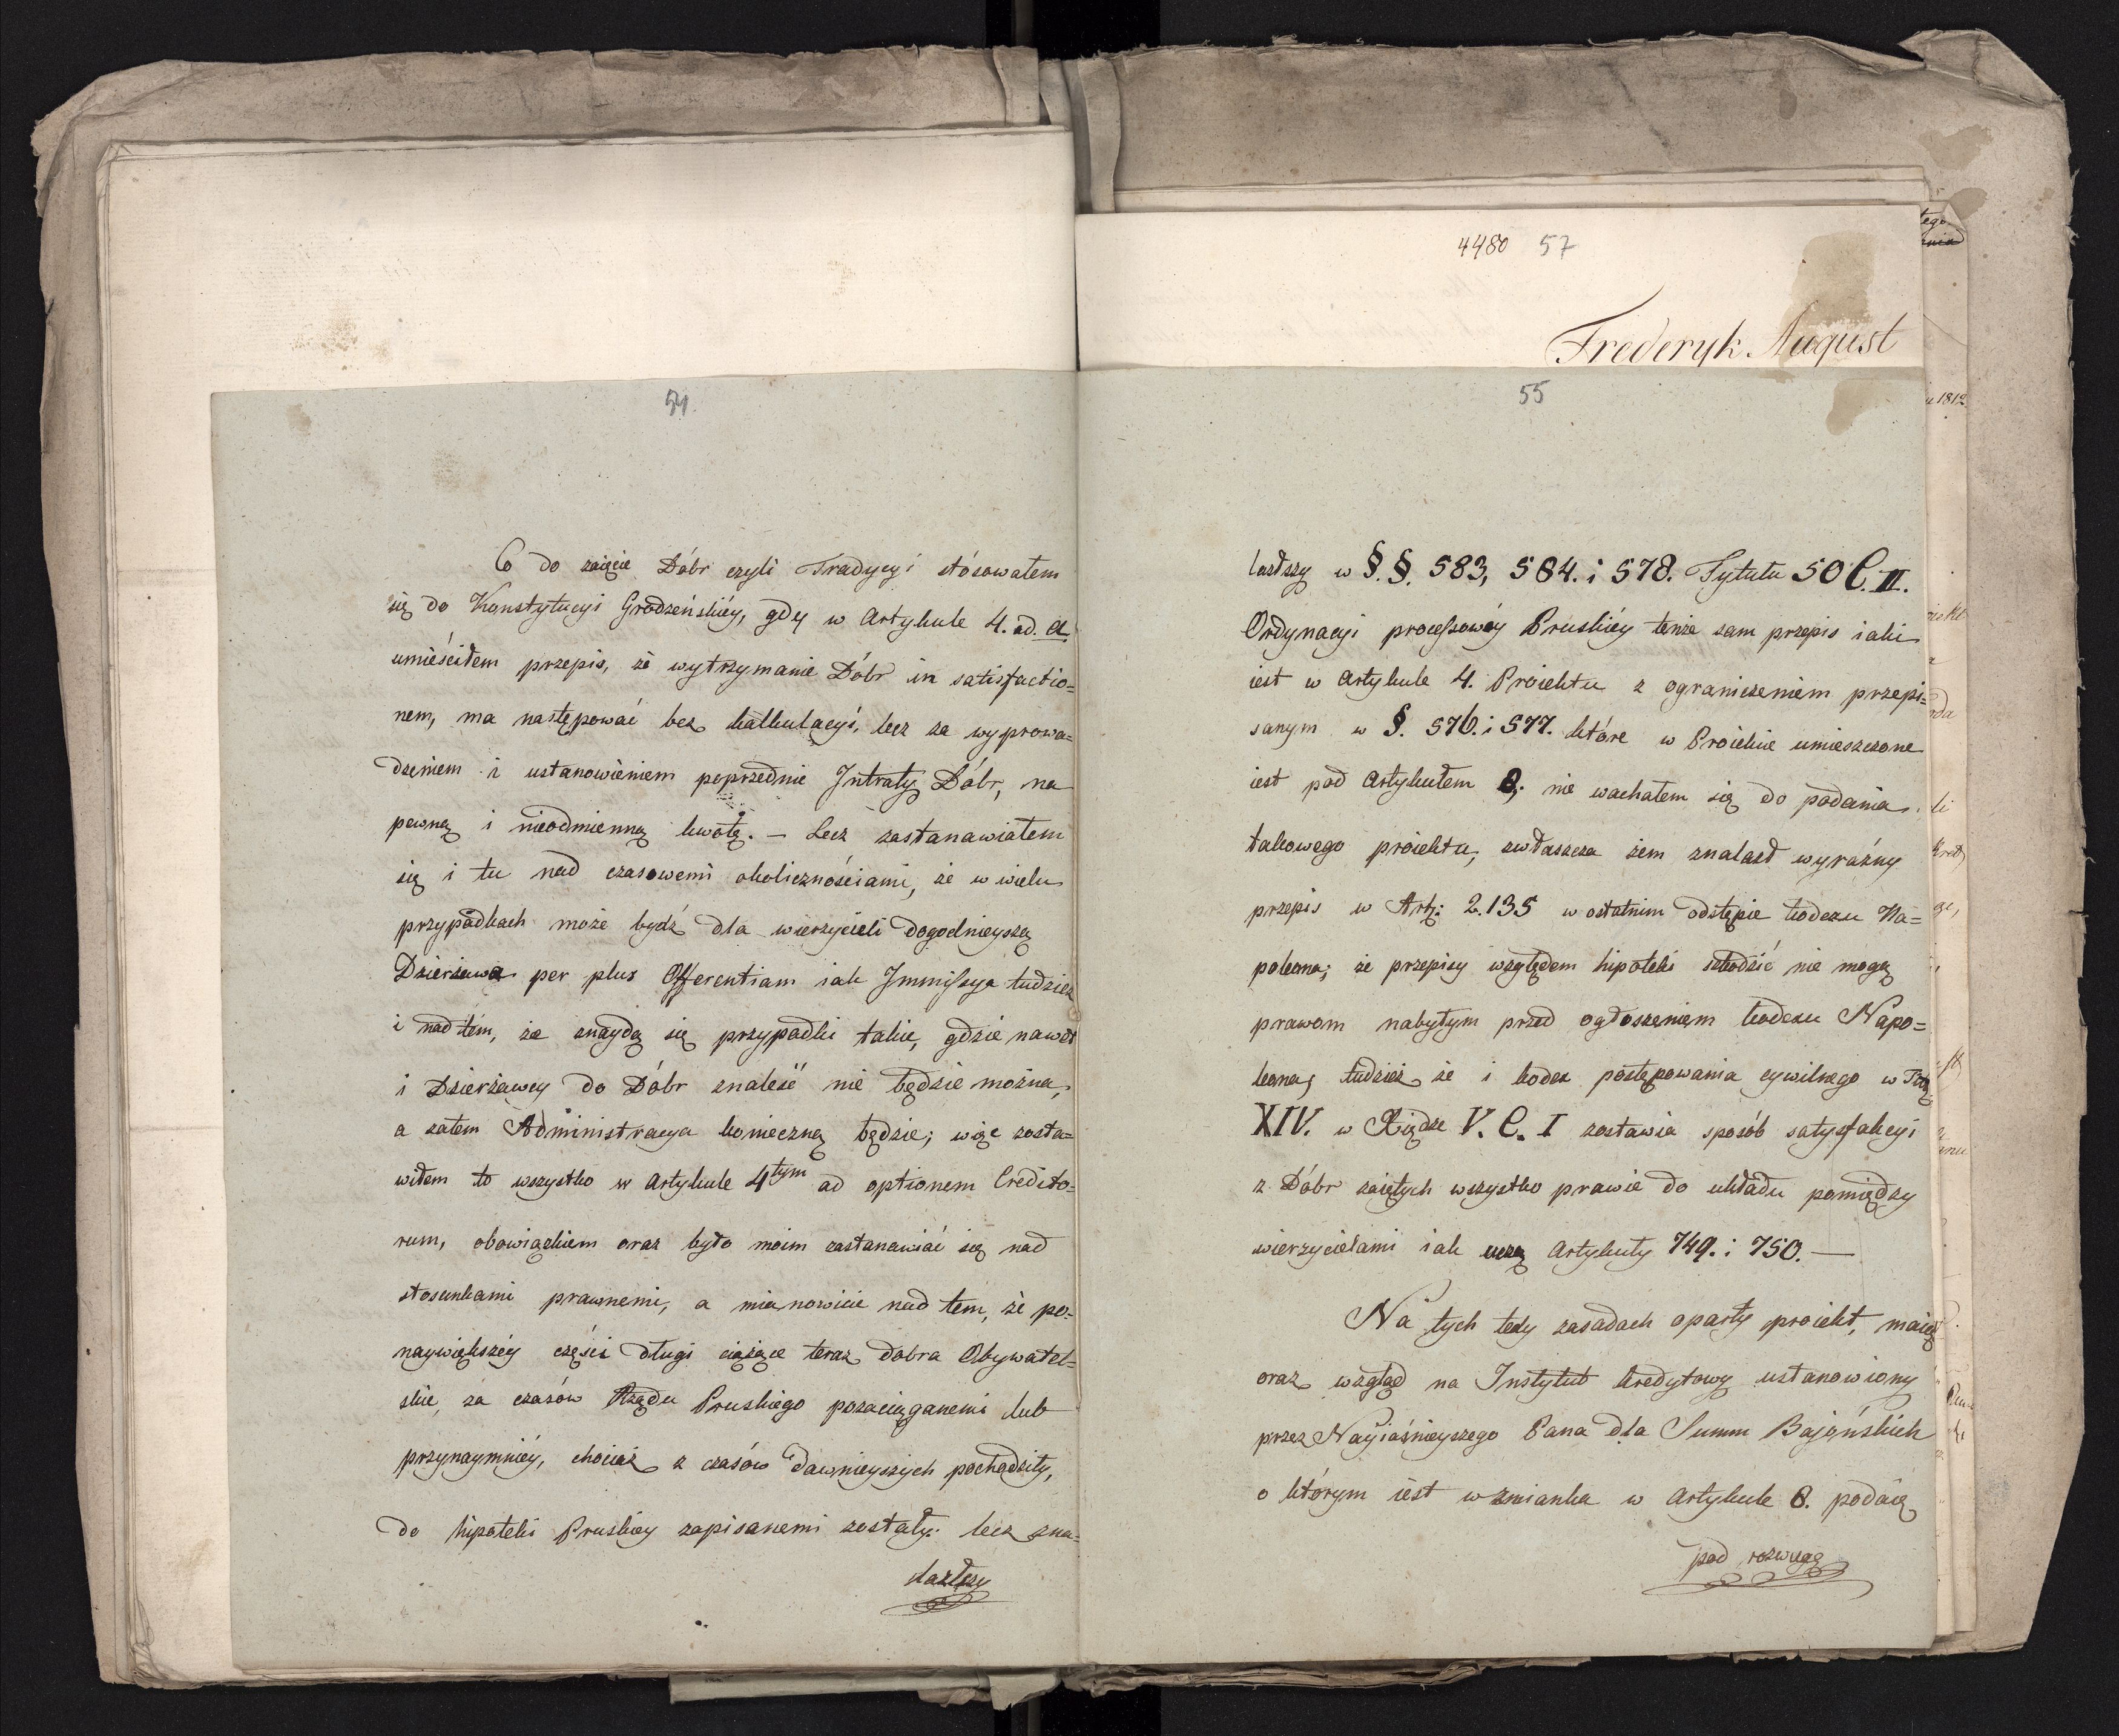 54.
Co do zaięcie Dóbr czyli Tradycyi stósowałem
się do Konstytucyi Grodzeńskiéy, gdy w Artykule 4. ad. a.
umieściłem przepis, że wytrzymanie Dóbr in satisfactio=
nem, ma następować bez kalkulacyi, lecz za wyprowa=
dzeniem i ustanowieniem poprzednie Jntraty Dóbr, na
pewną i nieodmienną kwotę. – Lecz zastanawiałem
się i tu nad czasowemi okolicznościami, że w wielu
przypadkach może bydź dla wierzycieli dogodnieyszą
Dzierżawa per plus Offerentiam iak Jmmissya tudzież
i nad tém, że znaydą się przypadki takie, gdzie nawet
i Dzierżawcy do Dóbr znaleść nie będzie można,
a zatem Administracya konieczną będzie; więc zosta=
wiłem to wszystko w Artykule 4tym ad optionem Credito=
rum, obowiązkiem oraz było moim zastanawiać się nad
stosunkami prawnemi, a mianowicie nad tem, że po=
naywiększéy części długi ciążące teraz dobra Obywatel=
skie, za czasów Rządu Pruskiego pozaciąganemi lub
przynaymniéy, chociaż z czasów dawnieyszych pochodziły,
do hipoteki Pruskiey zapisanemi zostały: lecz zna=
lazłszy
4480 57
Frederyk August
55
lazłszy w §.§. 583, 584. i 578. Tytułu 50 C. II.
Ordynacyi processowéy Pruskiéy tenże sam przepis iaki
iest w Artykule 4. Proiektu z ograniczeniem przepi=
sanym w §. 576. i 577. które w Proiekcie umieszczone
iest pod Artykułem 8; nie wachałem się do podania
takowego proiektu, zwłaszcza żem znalazł wyraźny
przepis w Art: 2.135 w ostatnim odstępie kodexu Na=
poleona; że przepisy względem hipoteki szkodzić nie mogą
prawom nabytym przed ogłoszeniem kodexu Napo=
leona, tudzież że i kodex postępowania cywilnego w
XIV. w Xiędze V. C. I zostawia sposób satysfakcyi
z Dóbr zaiętych wszystko prawie do układu pomiędzy
wierzycielami iak uczą Artykuły 749. i 750. —
Na tych tedy zasadach oparty proiekt, maiąc
oraz wzgląd na Instytut kredytowy ustanowiony
przez Nayiaśnieyszego Pana dla Summ Bajońskich
o którym iest wzmianka w Artykule 8. podaię
pod rozwagę